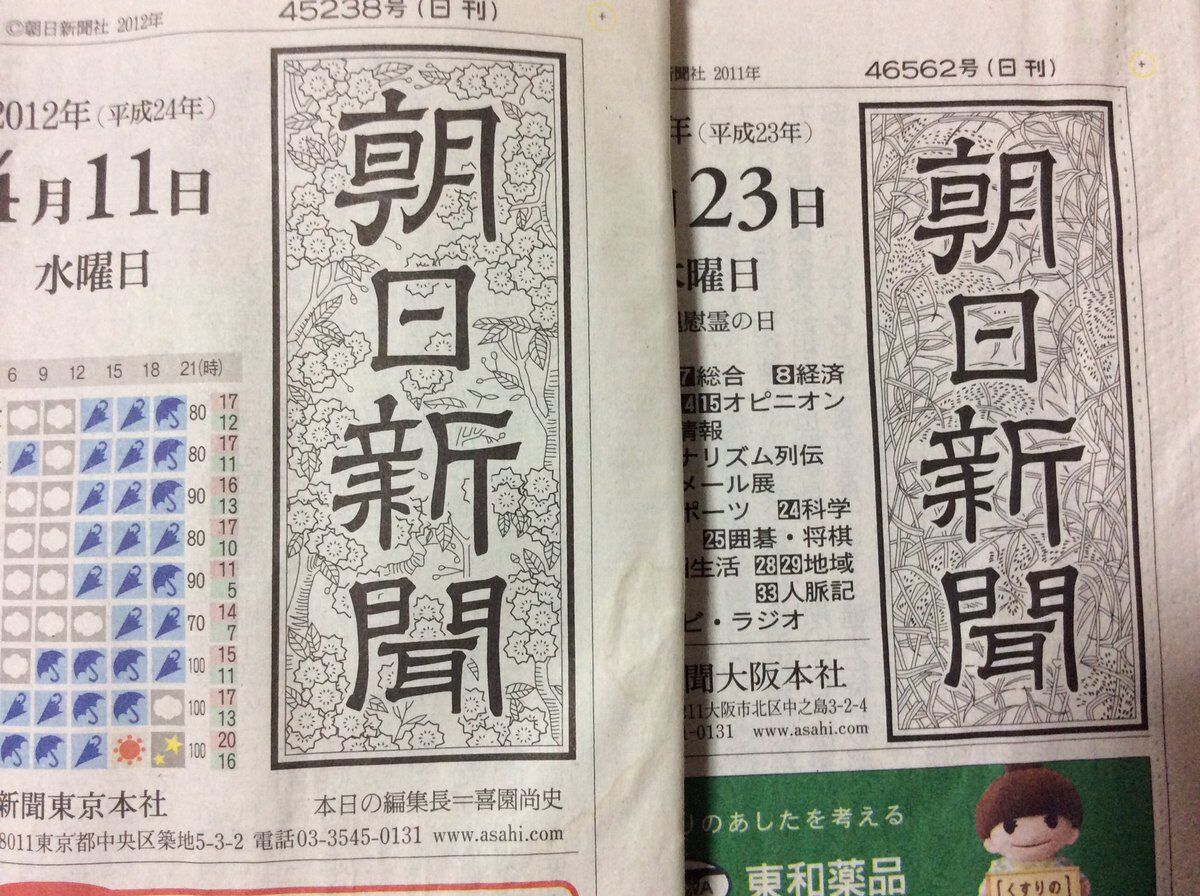 ©朝日新聞社 2012年
45238号(日刊)
2012年(平成24年)
4月11日
水曜日
朝日新聞
6 9 12 15 18 21(時)
80 17
12
80 17
11
90 16
13
80 17
10
90 11
5
70 14
7
100 15
11
100 17
13
100 20
16
新聞東京本社
本日の編集長=喜園尚史
8011東京都中央区築地5-3-2 電話03-3545-0131 www.asahi.com
聞社 2011年
46562号(日刊)
年(平成23年)
23日
木曜日
慰霊の日
7総合 8経済
14 15オピニオン
情報
ナリズム列伝
メール展
ポーツ 24科学
25囲碁・将棋
生活 28 29地域
33人脈記
ビ・ラジオ
朝日新聞
聞大阪本社
211大阪市北区中之島3-2-4
1-0131 www.asahi.com
りのあしたを考える
東和薬品
[くすりの